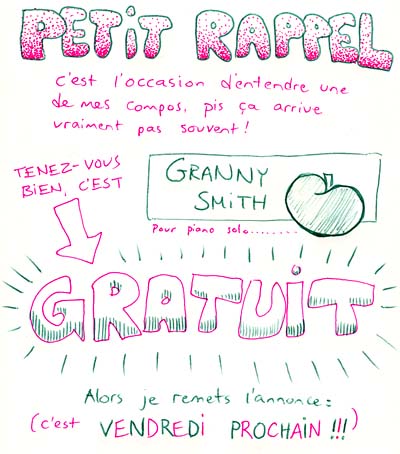 PETIT RAPPEL
c'est l'occasion d'entendre une
de mes compos, pis ça arrive
vraiment pas souvent !
TENEZ-VOUS
BIEN, C'EST
GRANNY
SMITH
Pour piano solo........
GRATUIT
Alors je remets l'annonce :
(c'est VENDREDI PROCHAIN !!!)